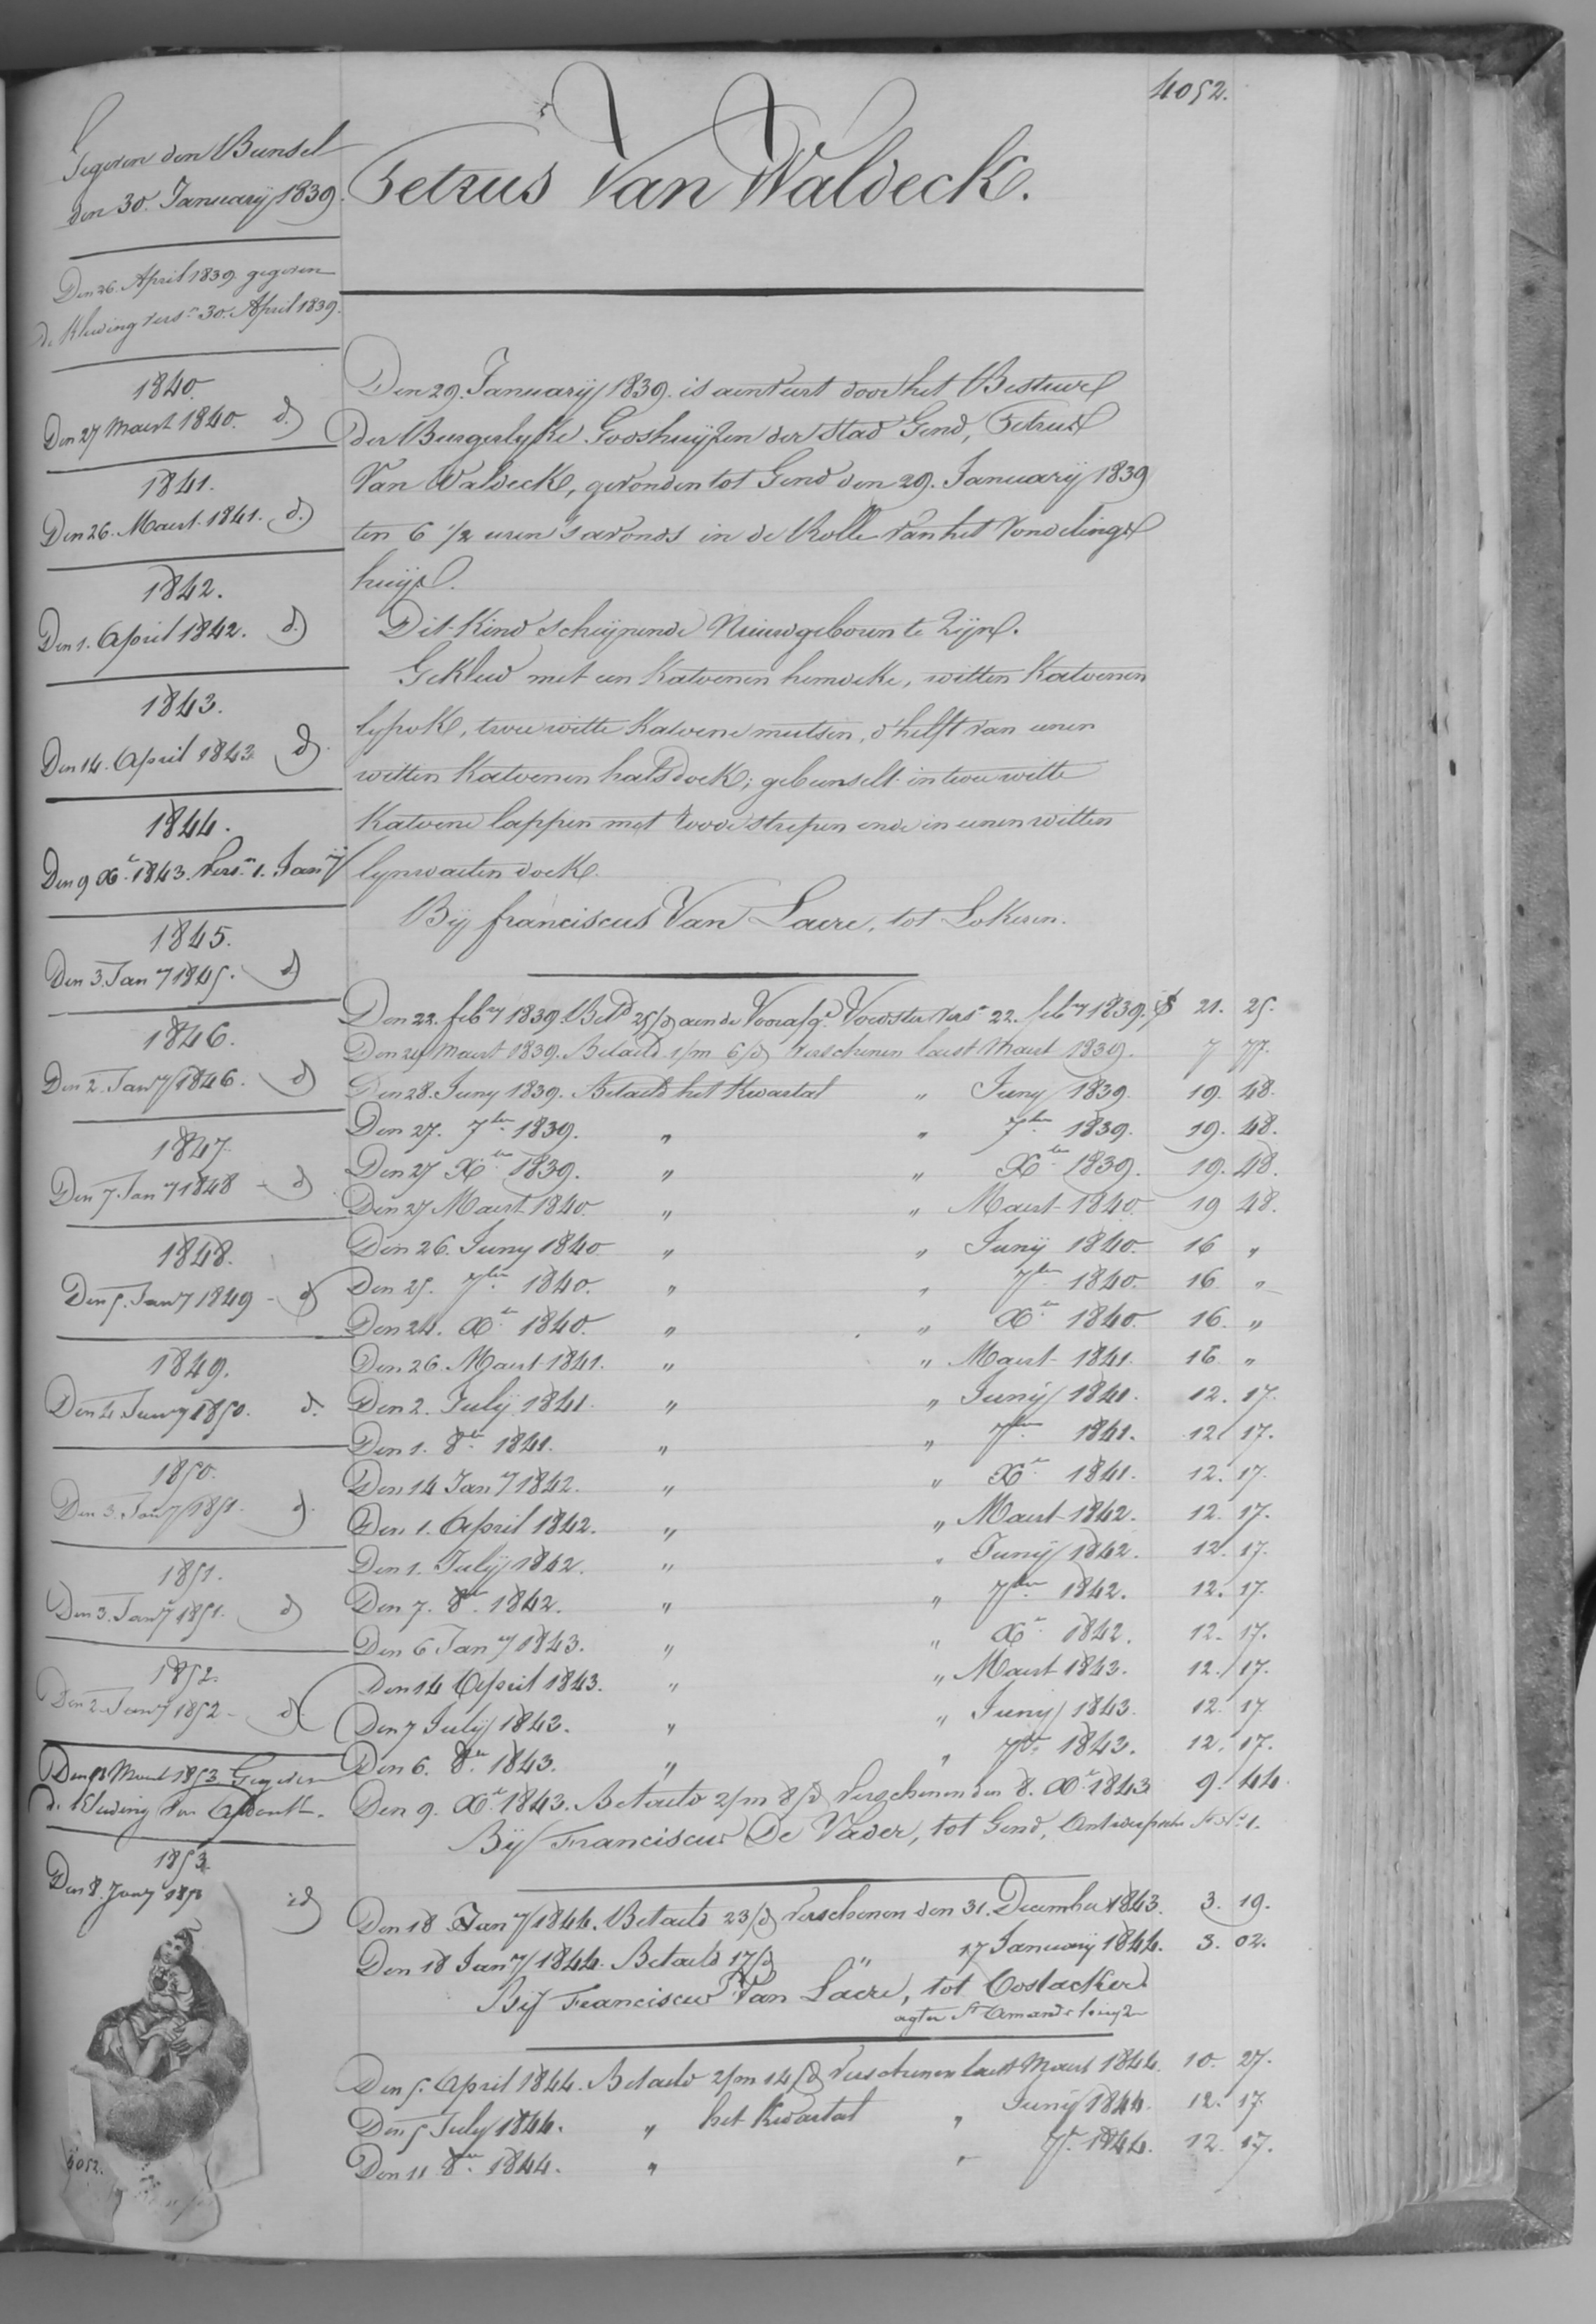 4052.
Petrus Van Waldeck.
Gegeven den Bunsel
den 30. January 1839.
Den 26. April 1839 gegeven
de Kleeding vers.n 30. April 1839.
1840.
Den 27 Maert 1840. d.)
1841.
Den 26. Maert 1841. d.)
1842.
Den 1. April 1842. d.)
1843.
Den 14. April 1843 d)
1844.
Den 9 Xr. 1843. vers.n 1. Jany
1845.
Den 3. Jany 1845. d)
1846.
Den 2. Jany 1846. d)
1847.
Den 7. Jany 1848 - d)
1848.
Den 5. Jany 1849 - d
1849.
Den 4. Jany 1850. d.
1850.
Den 3. Jany 1851. d.
1851.
Den 3. Jany 1851. d)
1852.
Den 2. Jany 1852 - d
Maert 1853 Gegeven
de Kleeding
1853.
Den 8. Jany id
4052.
Den 29. Januarij 1839. is aenveirt door het Bestuur
der Burgerlyke Godshuijzen der stad Gend, Petrus
Van Waldeck, gevonden tot Gend den 29. Januarij 1839
ten 6 1/2 uren 's avonds in de Rolle van het Vondelings
huijs.
Dit Kind schijnende Nieuwgeboren te Zijn.
Gekleed met een Katoenen hemdeke, witten Katoenen
lijfrok, twee witte Katoene mutsen, d'helft van eenen
witten Katoenen halsdoek; gebunselt in twee witte
Katoene lappen met roode strepen ende in eenen witten
lynwaeten doek.
Bij franciscus Van Laere, tot Lokeren.
Den 22. feby 1839. Betd 25/d aen de Vooraf.gd Voedster vers.n 22. feby 1839. 21. 25.
Den 29 Maert 1839. Betaeld 1/m 6/d verschenen laest Maert 1839. 7 77.
Den 28. Juny 1839. Betaeld het Kwartael " Juny 1839. 19. 48.
Den 27. 7ber 1839. " " 7ber 1839. 19. 48.
Den 27 Xber 1839. " " Xber 1839. 19. 48.
Den 27 Maert 1840. " " Maert 1840. 19 48.
Den 26. Juny 1840 " " Junij 1840. 16 "
Den 25. 7ber 1840. " " 7ber 1840. 16 "
Den 24. Xr. 1840. " " Xr. 1840. 16. "
Den 26. Maert 1841. " " Maert 1841. 16 "
Den 2. Julij 1841. " " Junij 1841. 12. 17.
Den 1. 8br 1841. " " 7ber 1841. 12 17.
Den 14 Jany 1842. " " Xr. 1841. 12. 17.
Den 1. April 1842. " " Maert 1842. 12. 17.
Den 1. Julij 1842. " " Junij 1842. 12. 17.
Den 7. 8br 1842. " " 7ber 1842. 12. 17.
Den 6 Jany 1843. " " Xr. 1842. 12. 17.
Den 14 April 1843. " " Maert 1843. 12. 17.
Den 7 Julij 1843. " " Juny 1843. 12. 17
Den 6. 8br 1843. " " 7br 1843. 12. 17.
Den 9. Xr 1843. Betaeld 2/m 8/d verschenen den 8. Xr 1843 9. 44.
Bij Franciscus De Vader, tot Gend, Antwerpsche
Den 18 Jany 1844. Betaeld 23/d verschenen den 31. December 1843. 3. 19.
Den 18 Jany 1844. Betaeld 17/d " 17 Januarij 1844. 3. 02.
Bij Franciscus Van Laere, tot Oostacker
agter St Amands
Den 5. April 1844. Betaeld 2/m 14/d verschenen laest Maert 1844. 10. 27.
Den 5 July 1844. " het Kwartael " Junij 1844. 12. 17.
Den 11 8br 1844. " " 7r. 1844. 12. 17.